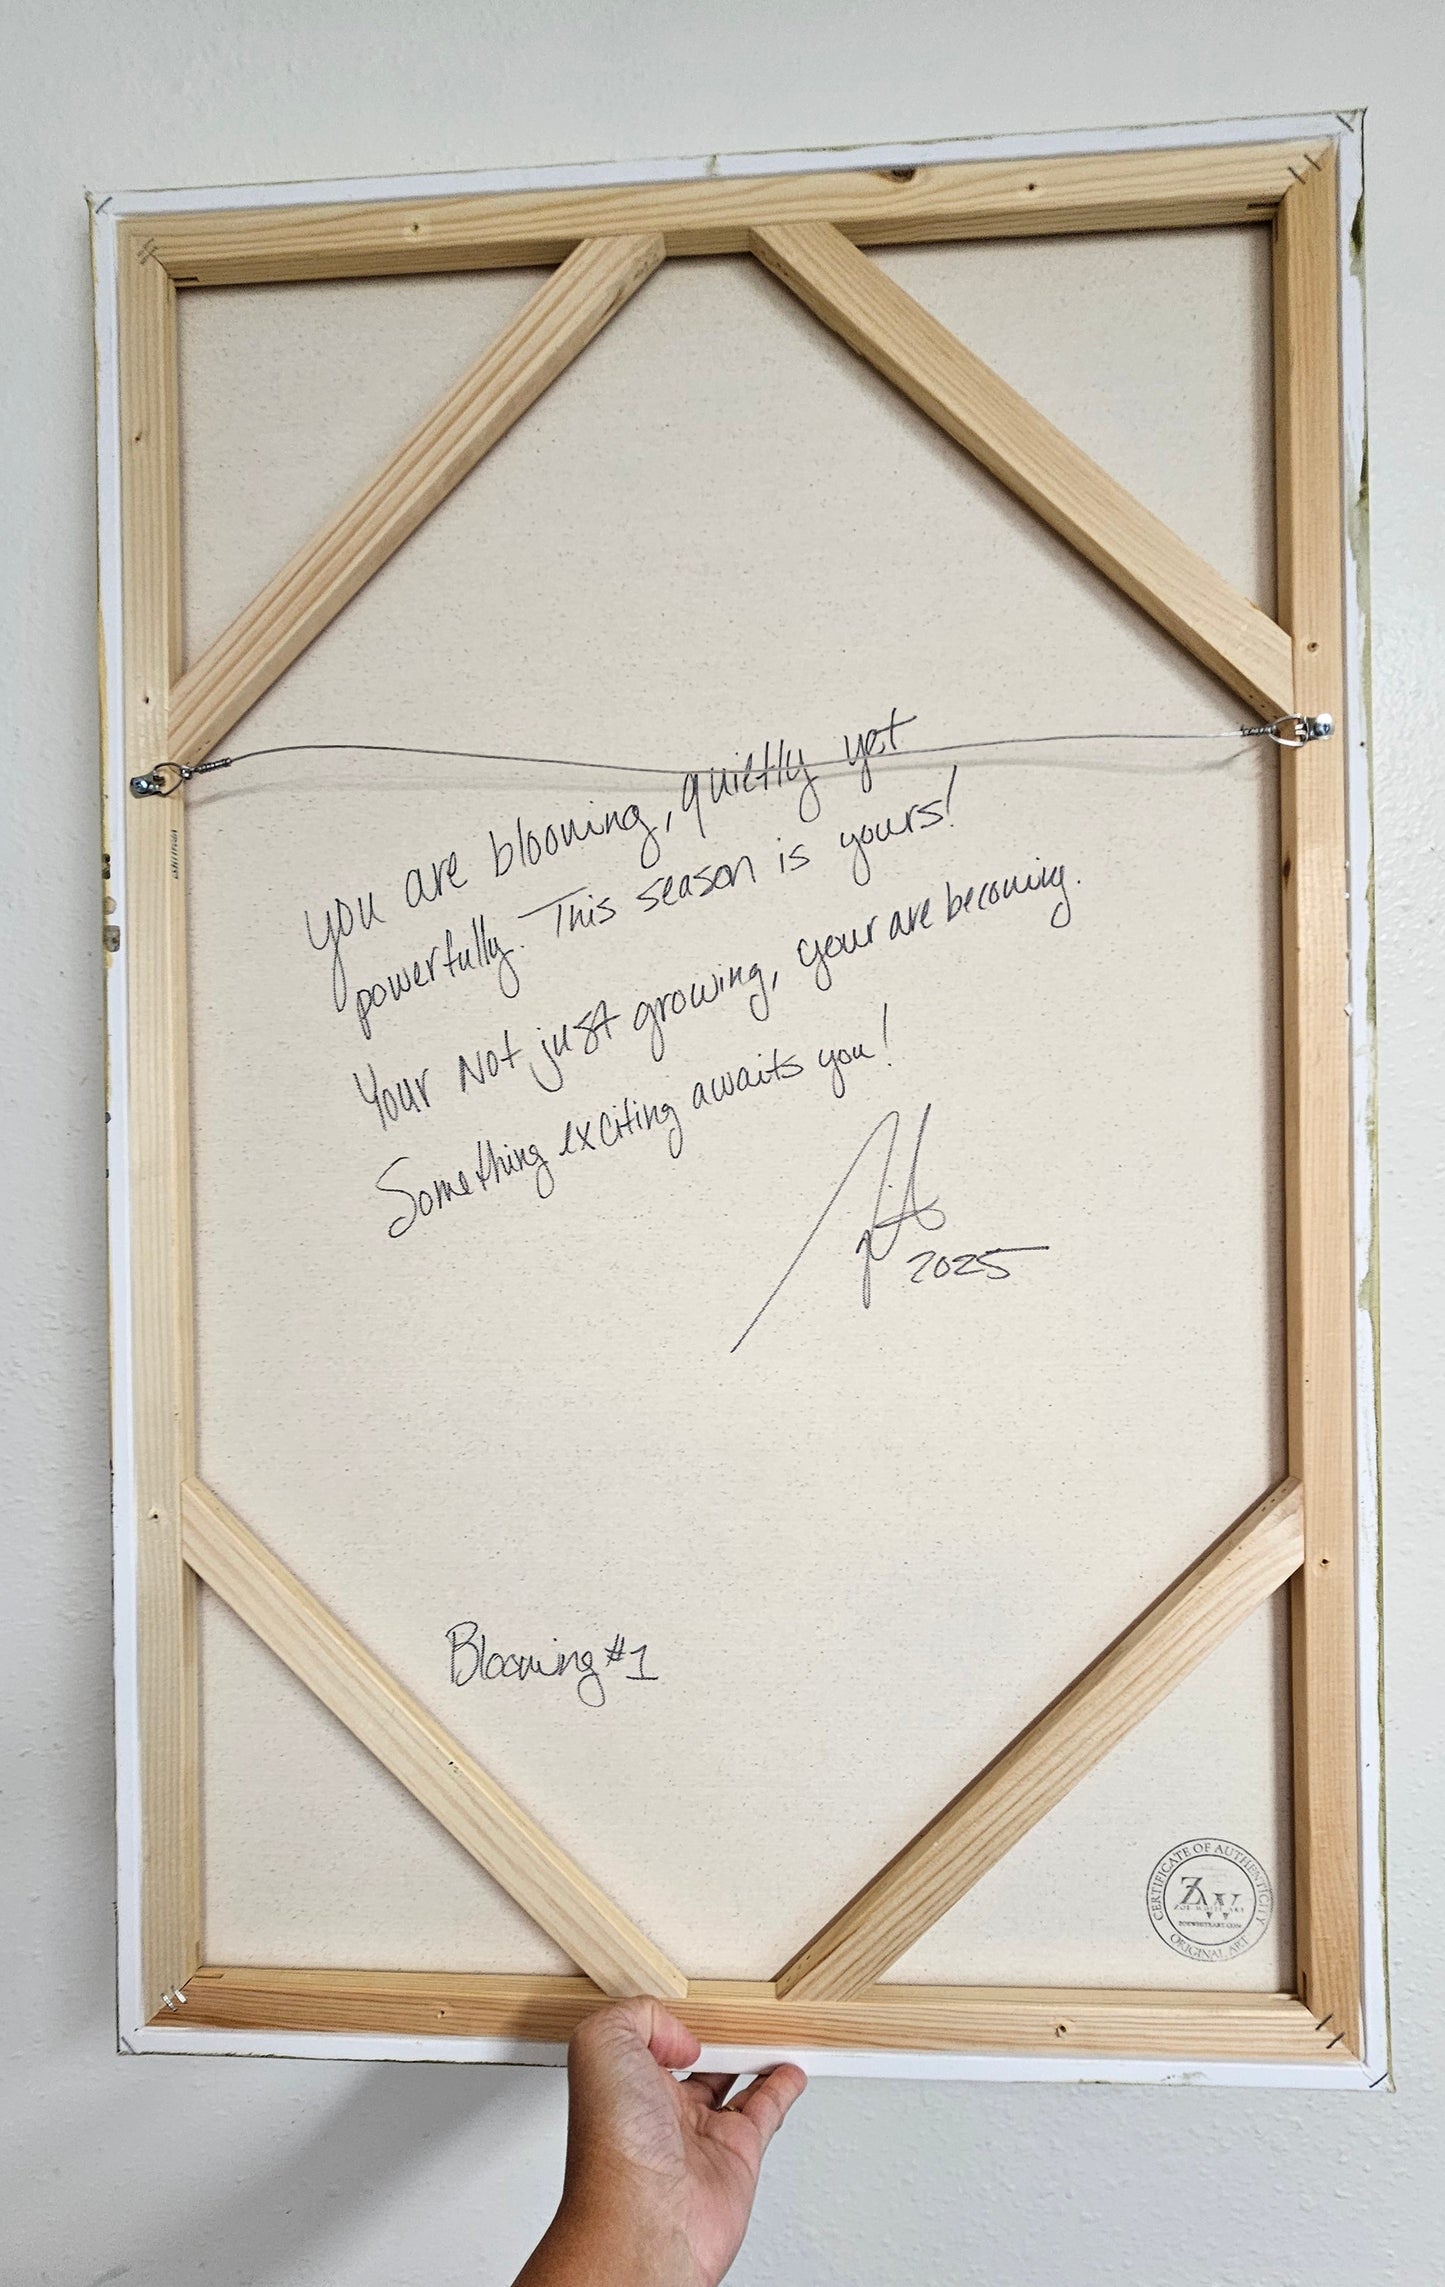 you are blooming, quietly yet
powerfully. This season is yours!
Your Not just growing, your are becoming.
Something exciting awaits you!
2025
Blooming #1
CERTIFICATE OF AUTHENTICITY
ZW
ZOE WHITE ART
ZOEWHITEART.COM
ORIGINAL ART